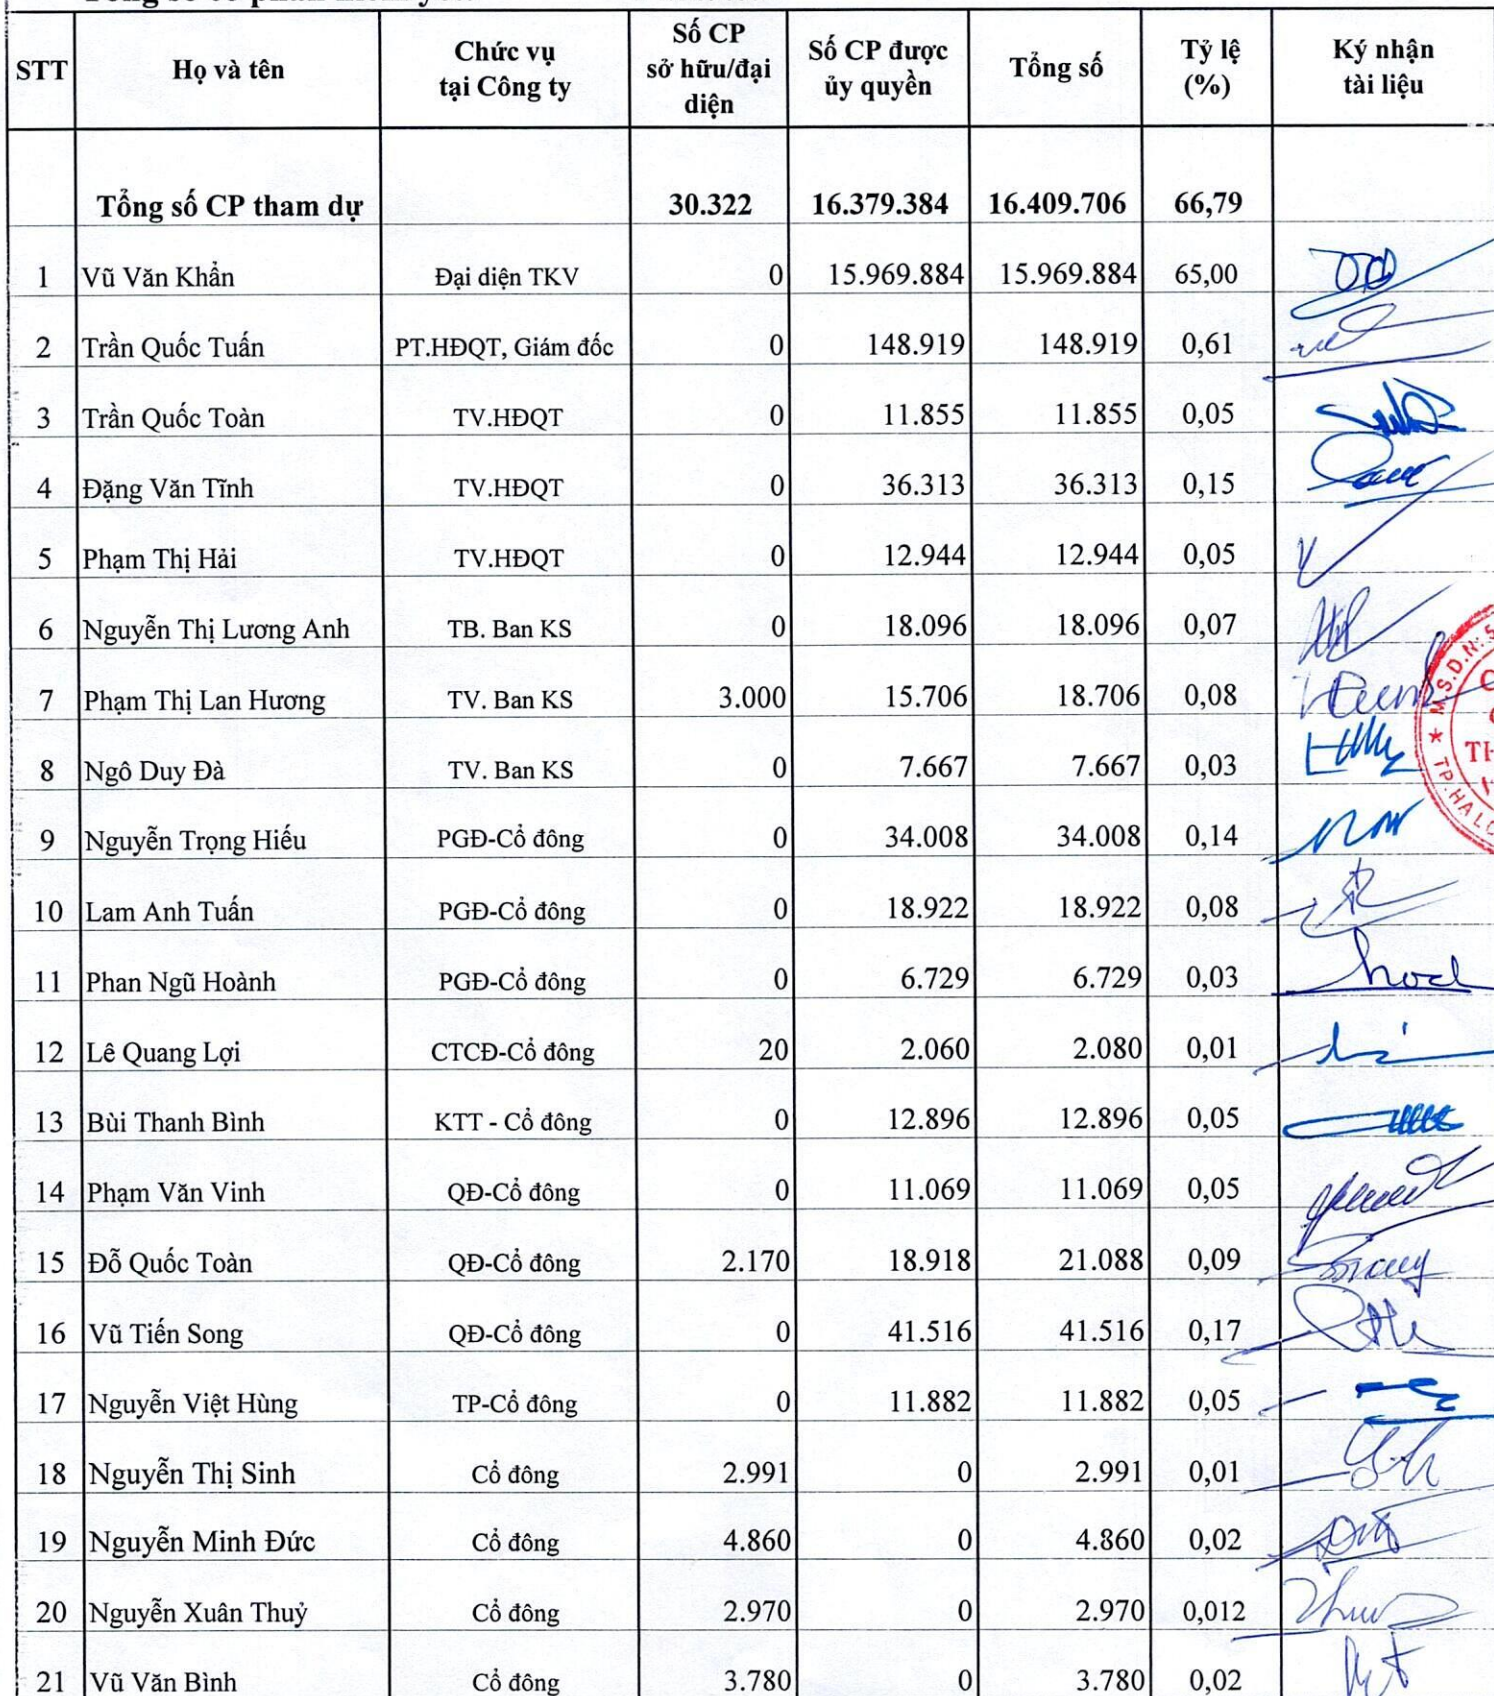 STT Họ và tên Chức vụ tại Công ty Số CP sở hữu/đại diện Số CP được ủy quyền Tổng số Tỷ lệ (%) Ký nhận tài liệu
Tổng số CP tham dự 30.322 16.379.384 16.409.706 66,79
1 Vũ Văn Khẩn Đại diện TKV 0 15.969.884 15.969.884 65,00
2 Trần Quốc Tuấn PT.HĐQT, Giám đốc 0 148.919 148.919 0,61
3 Trần Quốc Toàn TV.HĐQT 0 11.855 11.855 0,05
4 Đặng Văn Tĩnh TV.HĐQT 0 36.313 36.313 0,15
5 Phạm Thị Hải TV.HĐQT 0 12.944 12.944 0,05
6 Nguyễn Thị Lương Anh TB. Ban KS 0 18.096 18.096 0,07
7 Phạm Thị Lan Hương TV. Ban KS 3.000 15.706 18.706 0,08
8 Ngô Duy Đà TV. Ban KS 0 7.667 7.667 0,03
9 Nguyễn Trọng Hiếu PGĐ-Cổ đông 0 34.008 34.008 0,14
10 Lam Anh Tuấn PGĐ-Cổ đông 0 18.922 18.922 0,08
11 Phan Ngũ Hoành PGĐ-Cổ đông 0 6.729 6.729 0,03
12 Lê Quang Lợi CTCĐ-Cổ đông 20 2.060 2.080 0,01
13 Bùi Thanh Bình KTT - Cổ đông 0 12.896 12.896 0,05
14 Phạm Văn Vinh QĐ-Cổ đông 0 11.069 11.069 0,05
15 Đỗ Quốc Toàn QĐ-Cổ đông 2.170 18.918 21.088 0,09
16 Vũ Tiến Song QĐ-Cổ đông 0 41.516 41.516 0,17
17 Nguyễn Việt Hùng TP-Cổ đông 0 11.882 11.882 0,05
18 Nguyễn Thị Sinh Cổ đông 2.991 0 2.991 0,01
19 Nguyễn Minh Đức Cổ đông 4.860 0 4.860 0,02
20 Nguyễn Xuân Thuỷ Cổ đông 2.970 0 2.970 0,012
21 Vũ Văn Bình Cổ đông 3.780 0 3.780 0,02
M.S.D.N: 5
TP.HẠ LO